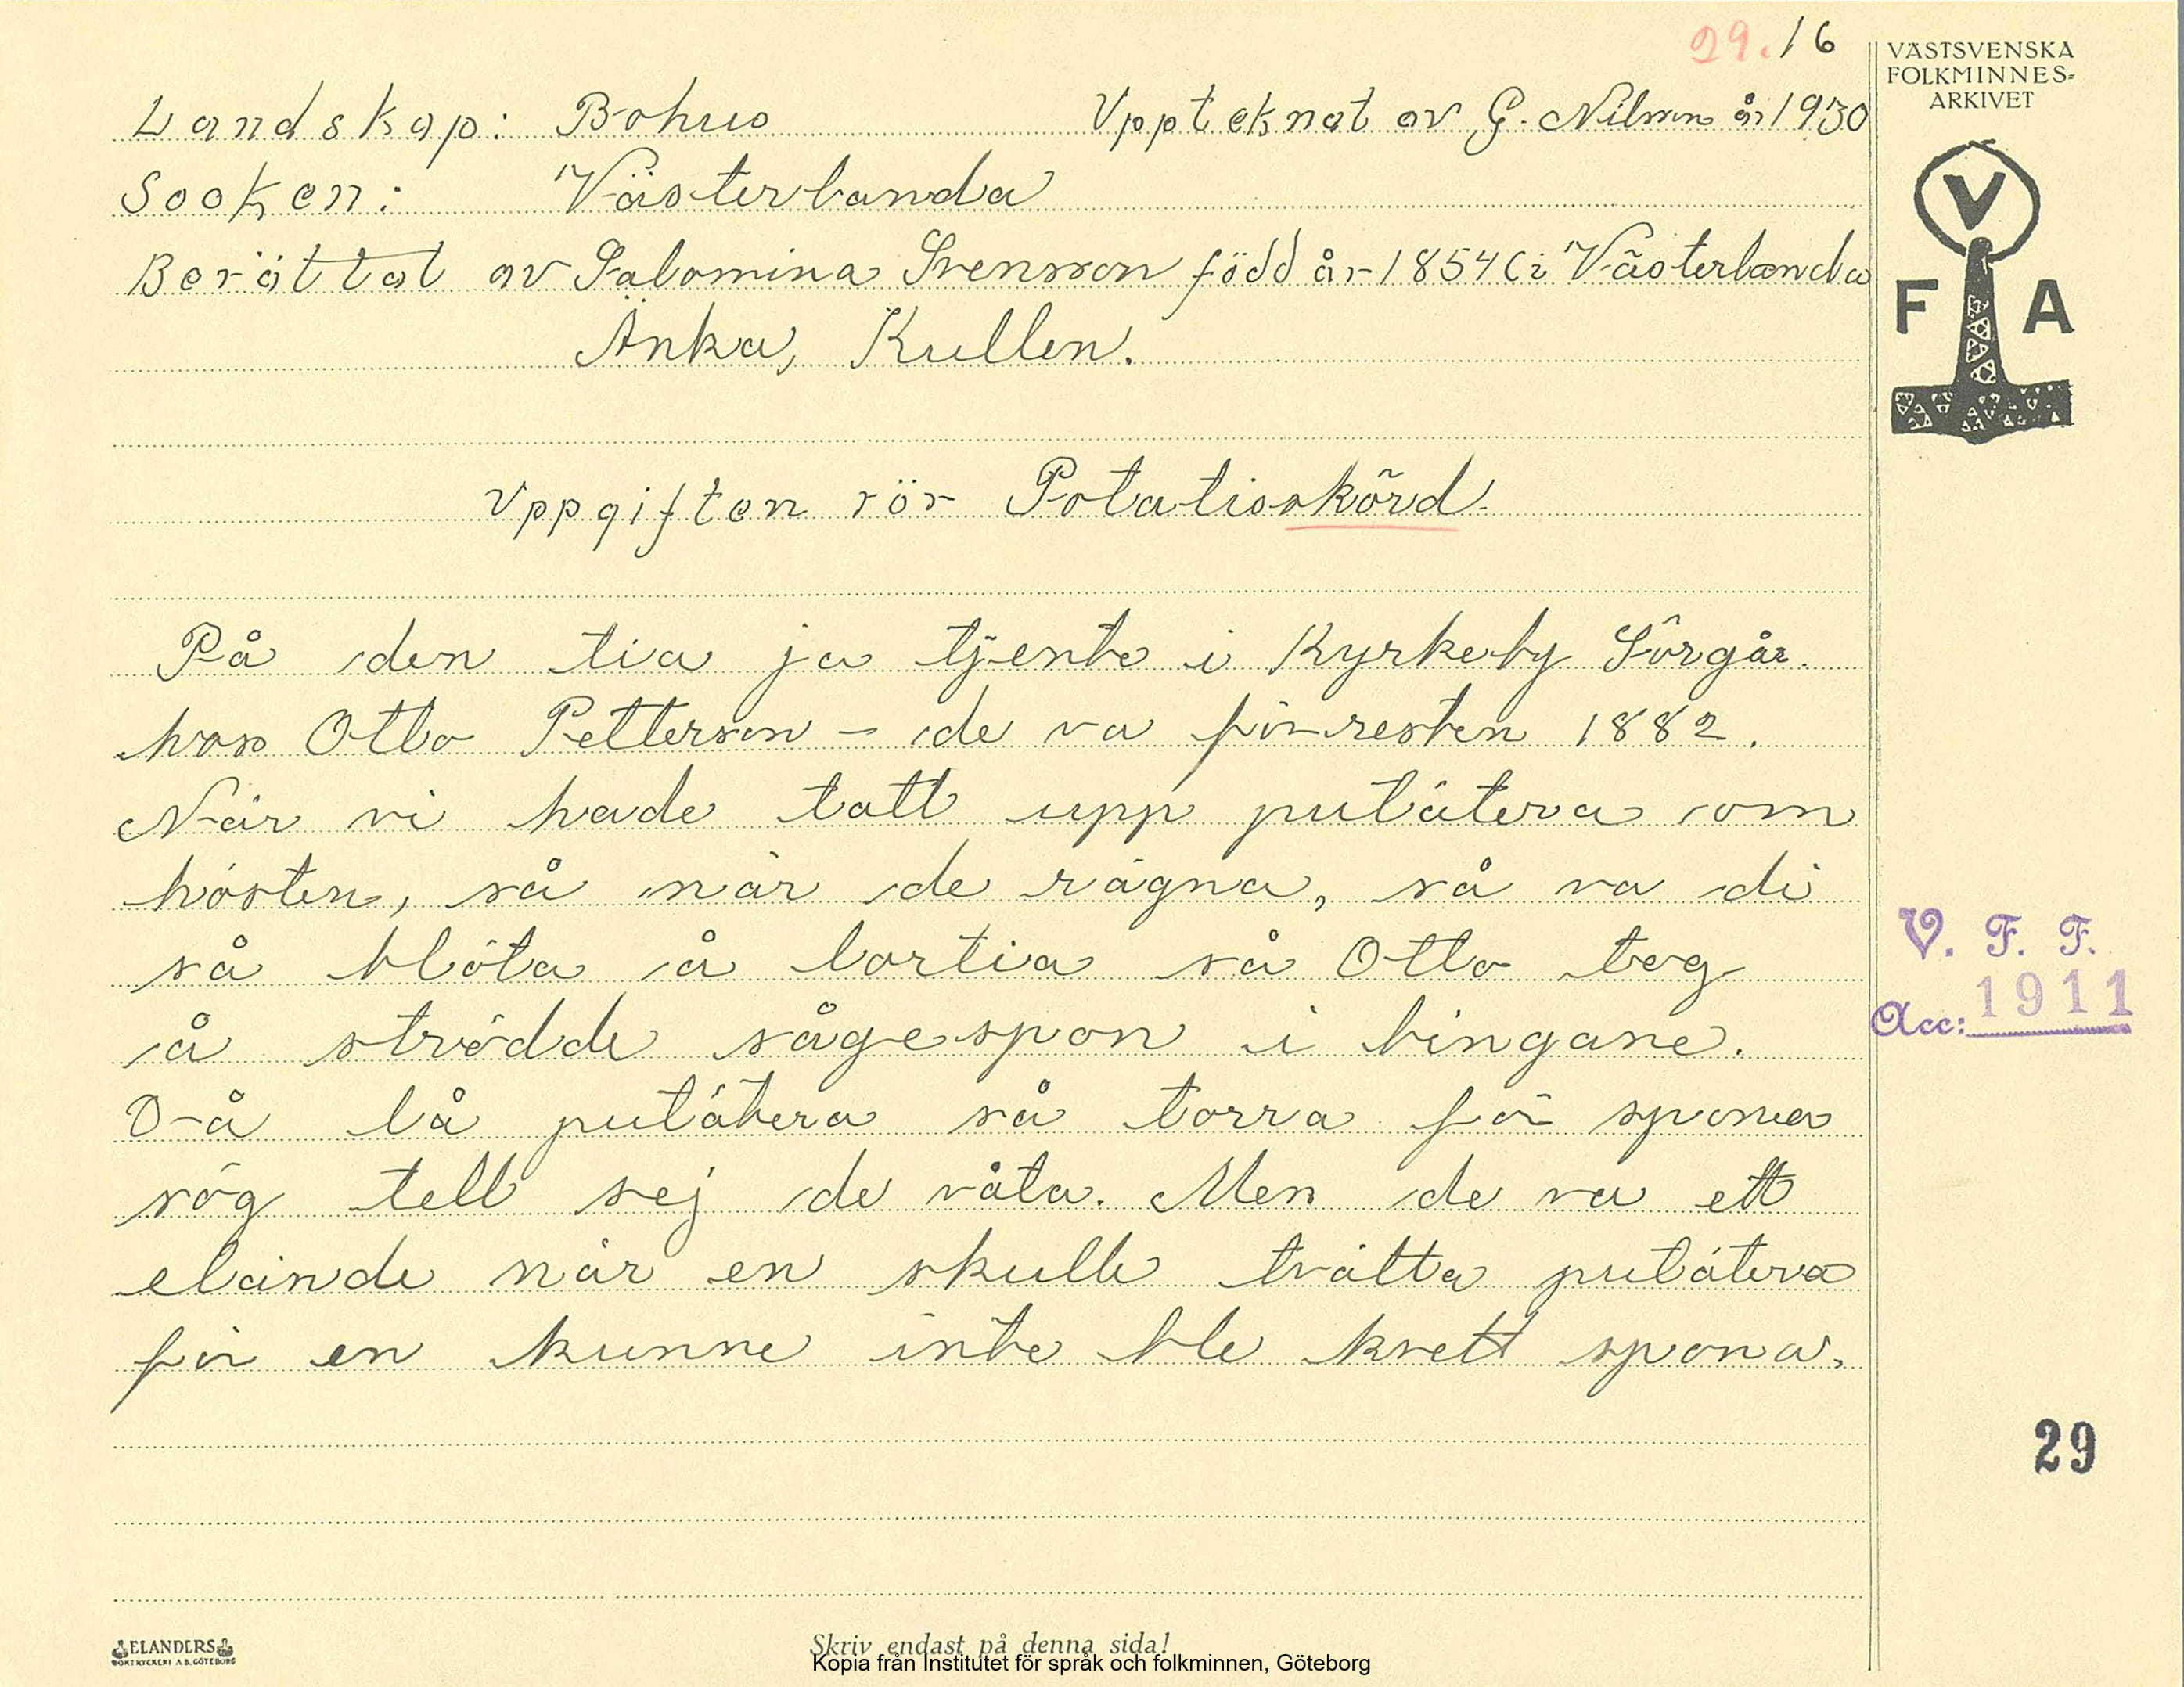 29.16
VÄSTSVENSKA
FOLKMINNES-
ARKIVET
Landskap: Bohus Uppteknat av G. Nilsson år 1930
Socken: Västerlanda
Berättat av Salomina Svensson född år 1854 i Västerlanda
Änka, Kullen.
V
F A
Uppgiften rör Potatisskörd.
På den tia ja tjente i Kyrkeby Sörgår.
hos Otto Petterson – de va förresten 1882.
När vi hade tatt upp putätera om
hösten, så när de rägna, så va di
så blöta å lortia så Otto tog
å strödde sågespon i bingane.
Då lå putätera så torra för spona
sög tell sej de våta. Men de va ett
elände när en skulle tvätta putätera
för en kunne inte ble kvett spona.
V. F. F.
Acc: 1911
29
ELANDERS
BOKTRYCKERI A.B. GÖTEBORG
Skriv endast på denna sida!
Kopia från Institutet för språk och folkminnen, Göteborg